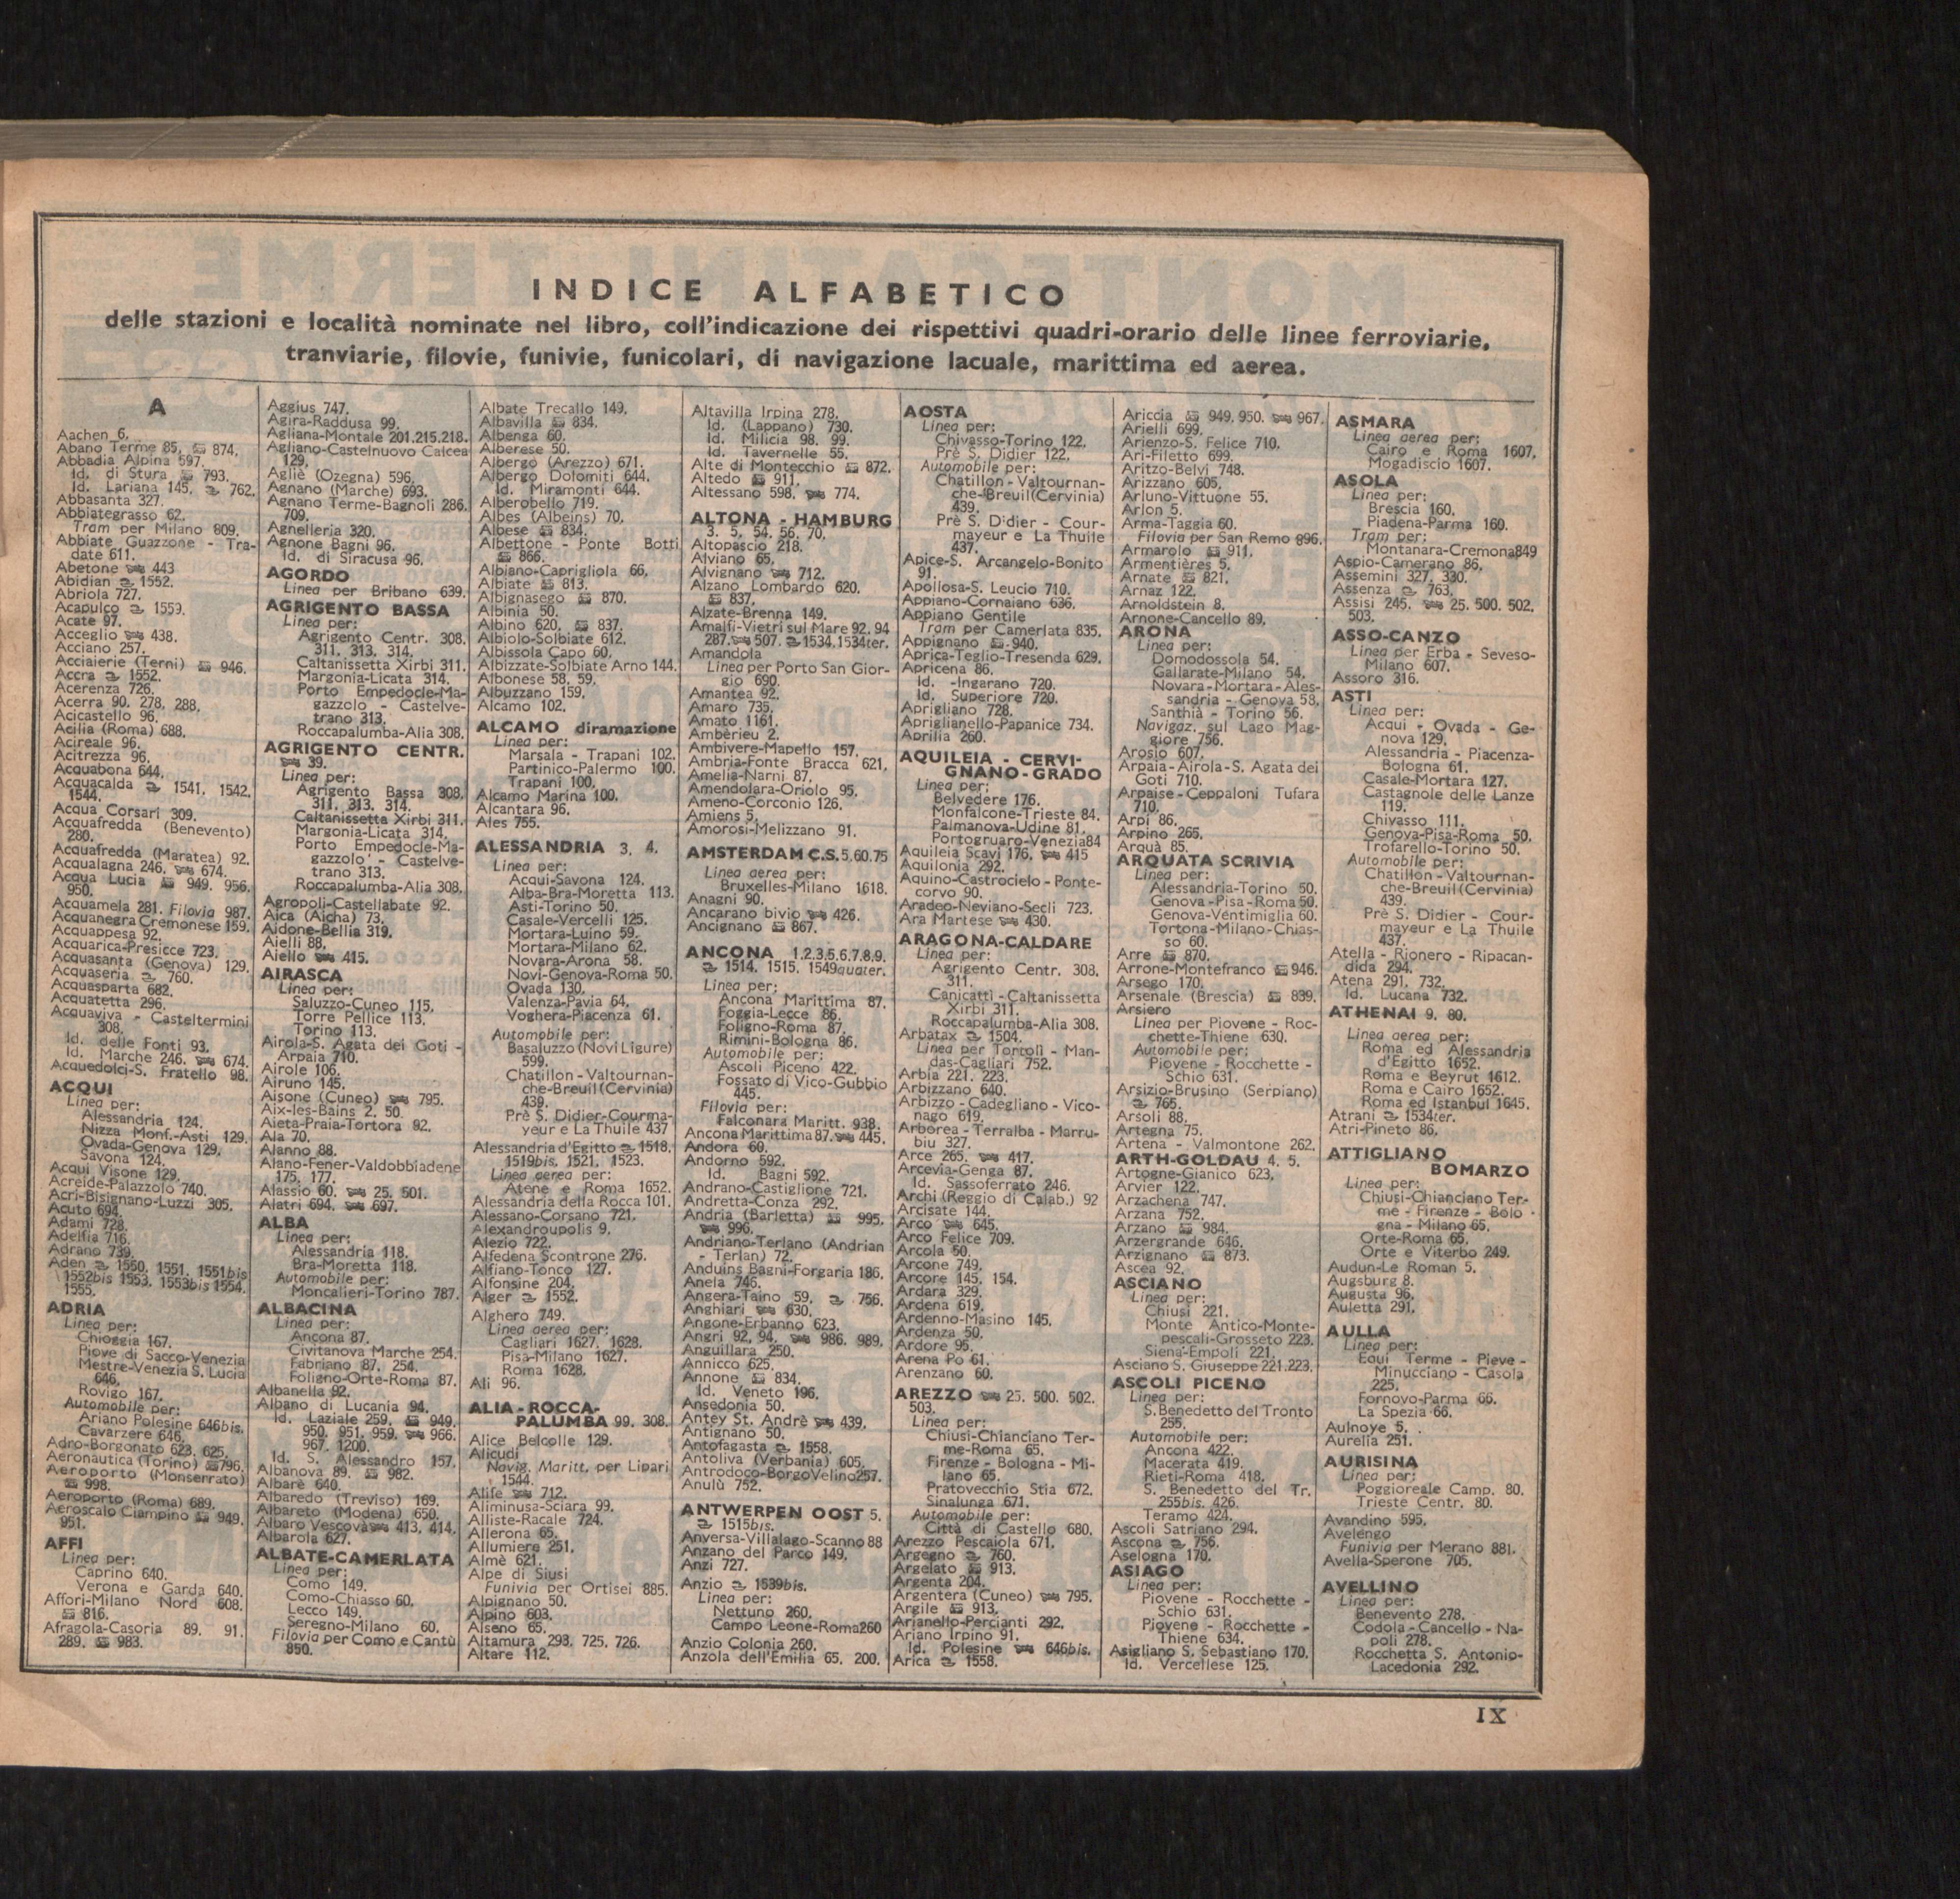 INDICE ALFABETICO
delle stazioni e località nominate nel libro, coll'indicazione dei rispettivi quadri-orario delle linee ferroviarie,
tranviarie, filovie, funivie, funicolari, di navigazione lacuale, marittima ed aerea.
A
Aachen 6.
Abano Terme 85, 874.
Abbadia Alpina 597.
Id. di Stura 793.
Id. Lariana 145, 762.
Abbasanta 327.
Abbiategrasso 62.
Tram per Milano 809.
Abbiate Guazzone - Tra-
date 611.
Abetone 443
Abidian 1552.
Abriola 727.
Acapulco 1559.
Acate 97.
Acceglio 438.
Acciano 257.
Acciaierie (Terni) 946.
Accra 1552.
Acerenza 726.
Acerra 90, 278, 288.
Acicastello 96.
Acilia (Roma) 688.
Acireale 96.
Acitrezza 96.
Acquabona 644.
Acquacalda 1541. 1542.
1544.
Acqua Corsari 309.
Acquafredda (Benevento)
280.
Acquafredda (Maratea) 92.
Acqualagna 246. 674.
Acqua Lucia 949. 956.
950.
Acquamela 281. Filovia 987.
Acquanegra Cremonese 159.
Acquappesa 92.
Acquarica-Presicce 723.
Acquasanta (Genova) 129.
Acquaseria 760.
Acquasparta 682.
Acquatetta 296.
Acquaviva - Casteltermini
308.
Id. delle Fonti 93.
Id. Marche 246. 674.
Acquedolci-S. Fratello 98.
ACQUI
Linea per:
Alessandria 124.
Nizza Monf.-Asti 129.
Ovada-Genova 129.
Savona 124.
Acqui Visone 129.
Acreide-Palazzolo 740.
Acri-Bisignano-Luzzi 305.
Acuto 694.
Adami 728.
Adelfia 716.
Adrano 739.
Aden 1550, 1551, 1551bis
1552bis 1553, 1553bis 1554.
1555.
ADRIA
Linea per:
Chioggia 167.
Piove di Sacco-Venezia
Mestre-Venezia S. Lucia
646.
Rovigo 167.
Automobile per:
Ariano Polesine 646bis.
Cavarzere 646.
Adro-Borgonato 623, 625.
Aeronautica (Torino) 796.
Aeroporto (Monserrato)
998.
Aeroporto (Roma) 689.
Aeroscalo Ciampino 949.
951.
AFFI
Linea per:
Caprino 640.
Verona e Garda 640.
Affori-Milano Nord 608.
816.
Afragola-Casoria 89. 91.
289. 983.
Aggius 747.
Agira-Raddusa 99.
Agliana-Montale 201.215.218.
Agliano-Castelnuovo Calcea
129.
Agliè (Ozegna) 596.
Agnano (Marche) 693.
Agnano Terme-Bagnoli 286.
709.
Agnelleria 320.
Agnone Bagni 96.
Id. di Siracusa 96.
AGORDO
Linea per Bribano 639.
AGRIGENTO BASSA
Linea per:
Agrigento Centr. 308.
311. 313. 314.
Caltanissetta Xirbi 311.
Margonia-Licata 314.
Porto Empedocle-Ma-
gazzolo - Castelve-
trano 313.
Roccapalumba-Alia 308.
AGRIGENTO CENTR.
39.
Linea per:
Agrigento Bassa 308.
311. 313. 314.
Caltanissetta Xirbi 311.
Margonia-Licata 314.
Porto Empedocle-Ma-
gazzolo - Castelve-
trano 313.
Roccapalumba-Alia 308.
Agropoli-Castellabate 92.
Aica (Aicha) 73.
Aidone-Bellia 319.
Aielli 88.
Aiello 415.
AIRASCA
Linea per:
Saluzzo-Cuneo 115.
Torre Pellice 113.
Torino 113.
Airola-S. Agata dei Goti -
Arpaia 710.
Airole 106.
Airuno 145.
Aisone (Cuneo) 795.
Aix-les-Bains 2. 50.
Aieta-Praia-Tortora 92.
Ala 70.
Alanno 88.
Alano-Fener-Valdobbiadene
175. 177.
Alassio 60. 25. 501.
Alatri 694. 697.
ALBA
Linea per:
Alessandria 118.
Bra-Moretta 118.
Automobile per:
Moncalieri-Torino 787.
ALBACINA
Linea per:
Ancona 87.
Civitanova Marche 254.
Fabriano 87. 254.
Foligno-Orte-Roma 87.
Albanella 92.
Albano di Lucania 94.
Id. Laziale 259. 949.
950. 951. 959. 966.
967. 1200.
Id. S. Alessandro 157.
Albanova 89. 982.
Albarè 640.
Albaredo (Treviso) 169.
Albareto (Modena) 650.
Albaro Vescovà 413. 414.
Albarola 627.
ALBATE-CAMERLATA
Linea per:
Como 149.
Como-Chiasso 60.
Lecco 149.
Seregno-Milano 60.
Filovia per Como e Cantù
850.
Albate Trecallo 149.
Albavilla 834.
Albenga 60.
Alberese 50.
Albergo (Arezzo) 671.
Albergo Dolomiti 644.
Id. Miramonti 644.
Alberobello 719.
Albes (Albeins) 70.
Albese 834.
Albettone - Ponte Botti
866.
Albiano-Caprigliola 66.
Albiate 813.
Albignasego 870.
Albinia 50.
Albino 620, 837.
Albiolo-Solbiate 612.
Albissola Capo 60.
Albizzate-Solbiate Arno 144.
Albonese 58. 59.
Albuzzano 159.
Alcamo 102.
ALCAMO diramazione
Linea per:
Marsala - Trapani 102.
Partinico-Palermo 100.
Trapani 100.
Alcamo Marina 100.
Alcantara 96.
Ales 755.
ALESSANDRIA 3. 4.
Linea per:
Acqui-Savona 124.
Alba-Bra-Moretta 113.
Asti-Torino 50.
Casale-Vercelli 125.
Mortara-Luino 59.
Mortara-Milano 62.
Novara-Arona 58.
Novi-Genova-Roma 50.
Ovada 130.
Valenza-Pavia 64.
Voghera-Piacenza 61.
Automobile per:
Basaluzzo (Novi Ligure)
599.
Chatillon - Valtournan-
che-Breuil(Cervinia)
439.
Prè S. Didier-Courma-
yeur e La Thuile 437
Alessandria d'Egitto 1518.
1519bis. 1521. 1523.
Linea aerea per:
Atene e Roma 1652.
Alessandria della Rocca 101.
Alessano-Corsano 721.
Alexandroupolis 9.
Alezio 722.
Alfedena Scontrone 276.
Alfiano-Tonco 127.
Alfonsine 204.
Alger 1552.
Alghero 749.
Linea aerea per:
Cagliari 1627. 1628.
Pisa-Milano 1627.
Roma 1628.
Ali 96.
ALIA - ROCCA-
PALUMBA 99. 308.
Alice Belcolle 129.
Alicudi
Navig. Maritt. per Lipari
1544.
Alife 712.
Aliminusa-Sciara 99.
Alliste-Racale 724.
Allerona 65.
Allumiere 251.
Almè 621.
Alpe di Siusi
Funivia per Ortisei 885.
Alpignano 50.
Alpino 603.
Alseno 65.
Altamura 293. 725. 726.
Altare 112.
Altavilla Irpina 278.
Id. (Lappano) 730.
Id. Milicia 98. 99.
Id. Tavernelle 55.
Alte di Montecchio 872.
Altedo 911.
Altessano 598. 774.
ALTONA - HAMBURG
3. 5. 54. 56. 70.
Altopascio 218.
Alviano 65.
Alvignano 712.
Alzano Lombardo 620.
837.
Alzate-Brenna 149.
Amalfi-Vietri sul Mare 92. 94
287. 507. 1534.1534ter.
Amandola
Linea per Porto San Gior-
gio 690.
Amantea 92.
Amaro 735.
Amato 1161.
Ambèrieu 2.
Ambivere-Mapello 157.
Ambria-Fonte Bracca 621.
Amelia-Narni 87.
Amendolara-Oriolo 95.
Ameno-Corconio 126.
Amiens 5.
Amorosi-Melizzano 91.
AMSTERDAM C.S.5.60.75
Linea aerea per:
Bruxelles-Milano 1618.
Anagni 90.
Ancarano bivio 426.
Ancignano 867.
ANCONA 1.2.3.5.6.7.8.9.
1514. 1515. 1549quater.
Linea per:
Ancona Marittima 87.
Foggia-Lecce 86.
Foligno-Roma 87.
Rimini-Bologna 86.
Automobile per:
Ascoli Piceno 422.
Fossato di Vico-Gubbio
445.
Filovia per:
Falconara Maritt. 938.
Ancona Marittima 87. 445.
Andora 60.
Andorno 592.
Id. Bagni 592.
Andrano-Castiglione 721.
Andretta-Conza 292.
Andria (Barletta) 995.
996.
Andriano-Terlano (Andrian
- Terlan) 72.
Anduins Bagni-Forgaria 186.
Anela 746.
Angera-Taino 59. 756.
Anghiari 630.
Angone-Erbanno 623.
Angri 92. 94. 986. 989.
Anguillara 250.
Annicco 625.
Annone 834.
Id. Veneto 196.
Ansedonia 50.
Antey St. Andrè 439.
Antignano 50.
Antofagasta 1558.
Antoliva (Verbania) 605.
Antrodoco-BorgoVelino257.
Anulù 752.
ANTWERPEN OOST 5.
1515bis.
Anversa-Villalago-Scanno 88
Anzano del Parco 149.
Anzi 727.
Anzio 1539bis.
Linea per:
Nettuno 260.
Campo Leone-Roma260
Anzio Colonia 260.
Anzola dell'Emilia 65. 200.
AOSTA
Linea per:
Chivasso-Torino 122.
Prè S. Didier 122.
Automobile per:
Chatillon - Valtournan-
che-Breuil(Cervinia)
439.
Prè S. Didier - Cour-
mayeur e La Thuile
437.
Apice-S. Arcangelo-Bonito
91.
Apollosa-S. Leucio 710.
Appiano-Cornaiano 636.
Appiano Gentile
Tram per Camerlata 835.
Appignano 940.
Aprica-Teglio-Tresenda 629.
Apricena 86.
Id. -Ingarano 720.
Id. Superiore 720.
Aprigliano 728.
Apriglianello-Papanice 734.
Aprilia 260.
AQUILEIA - CERVI-
GNANO - GRADO
Linea per:
Belvedere 176.
Monfalcone-Trieste 84.
Palmanova-Udine 81.
Portogruaro-Venezia84
Aquileia Scavi 176. 415
Aquilonia 292.
Aquino-Castrocielo - Ponte-
corvo 90.
Aradeo-Neviano-Seclì 723.
Ara Martese 430.
ARAGONA-CALDARE
Linea per:
Agrigento Centr. 303.
311.
Canicattì - Caltanissetta
Xirbi 311.
Roccapalumba-Alia 308.
Arbatax 1504.
Linea per Tortolì - Man-
das-Cagliari 752.
Arbia 221. 223.
Arbizzano 640.
Arbizzo - Cadegliano - Vico-
nago 619.
Arborea - Terralba - Marru-
biu 327.
Arce 265. 417.
Arcevia-Genga 87.
Id. Sassoferrato 246.
Archi (Reggio di Calab.) 92
Arcisate 144.
Arco 645.
Arco Felice 709.
Arcola 50.
Arcone 749.
Arcore 145. 154.
Ardara 329.
Ardena 619.
Ardenno-Masino 145.
Ardenza 50.
Ardore 95.
Arena Po 61.
Arenzano 60.
AREZZO 25. 500. 502.
503.
Linea per:
Chiusi-Chianciano Ter-
me-Roma 65.
Firenze - Bologna - Mi-
lano 65.
Pratovecchio Stia 672.
Sinalunga 671.
Automobile per:
Città di Castello 680.
Arezzo Pescaiola 671.
Argegno 760.
Argelato 913.
Argenta 204.
Argentera (Cuneo) 795.
Argile 913.
Arianello-Percianti 292.
Ariano Irpino 91.
Id. Polesine 646bis.
Arica 1558.
Ariccia 949. 950. 967.
Arielli 699.
Arienzo-S. Felice 710.
Ari-Filetto 699.
Aritzo-Belvì 748.
Arizzano 605.
Arluno-Vittuone 55.
Arlon 5.
Arma-Taggia 60.
Filovia per San Remo 896.
Armarolo 911.
Armentières 5.
Arnate 821.
Arnaz 122.
Arnoldstein 8.
Arnone-Cancello 89.
ARONA
Linea per:
Domodossola 54.
Gallarate-Milano 54.
Novara - Mortara - Ales-
sandria - Genova 58.
Santhià - Torino 56.
Navigaz. sul Lago Mag-
giore 756.
Arosio 607.
Arpaia - Airola - S. Agata dei
Goti 710.
Arpaise - Ceppaloni Tufara
710.
Arpi 86.
Arpino 265.
Arquà 85.
ARQUATA SCRIVIA
Linea per:
Alessandria-Torino 50.
Genova - Pisa - Roma 50.
Genova-Ventimiglia 60.
Tortona-Milano-Chias-
so 60.
Arre 870.
Arrone-Montefranco 946.
Arsego 170.
Arsenale (Brescia) 839.
Arsiero
Linea per Piovene - Roc-
chette-Thiene 630.
Automobile per:
Piovene - Rocchette -
Schio 631.
Arsizio-Brusino (Serpiano)
765.
Arsoli 88.
Artegna 75.
Artena - Valmontone 262.
ARTH-GOLDAU 4. 5.
Artogne-Gianico 623.
Arvier 122.
Arzachena 747.
Arzana 752.
Arzano 984.
Arzergrande 646.
Arzignano 873.
Ascea 92.
ASCIANO
Linea per:
Chiusi 221.
Monte Antico-Monte-
pescali-Grosseto 223.
Siena-Empoli 221.
Asciano S. Giuseppe 221.223.
ASCOLI PICENO
Linea per:
S.Benedetto del Tronto
255.
Automobile per:
Ancona 422.
Macerata 419.
Rieti-Roma 418.
S. Benedetto del Tr.
255bis. 426.
Teramo 424.
Ascoli Satriano 294.
Ascona 756.
Aselogna 170.
ASIAGO
Linea per:
Piovene - Rocchette -
Schio 631.
Piovene - Rocchette -
Thiene 634.
Asigliano S. Sebastiano 170.
Id. Vercellese 125.
ASMARA
Linea aerea per:
Cairo e Roma 1607.
Mogadiscio 1607.
ASOLA
Linea per:
Brescia 160.
Piadena-Parma 160.
Tram per:
Montanara-Cremona849
Aspio-Camerano 86.
Assemini 327. 330.
Assenza 763.
Assisi 245. 25. 500. 502.
503.
ASSO-CANZO
Linea per Erba - Seveso-
Milano 607.
Assoro 316.
ASTI
Linea per:
Acqui - Ovada - Ge-
nova 129.
Alessandria - Piacenza-
Bologna 61.
Casale-Mortara 127.
Castagnole delle Lanze
119.
Chivasso 111.
Genova-Pisa-Roma 50.
Trofarello-Torino 50.
Automobile per:
Chatillon - Valtournan-
che-Breuil(Cervinia)
439.
Prè S. Didier - Cour-
mayeur e La Thuile
437.
Atella - Rionero - Ripacan-
dida 294.
Atena 291. 732.
Id. Lucana 732.
ATHENAI 9. 80.
Linea aerea per:
Roma ed Alessandria
d'Egitto 1652.
Roma e Beyrut 1612.
Roma e Cairo 1652.
Roma ed Istanbul 1645.
Atrani 1534ter.
Atri-Pineto 86.
ATTIGLIANO
BOMARZO
Linea per:
Chiusi-Chianciano Ter-
me - Firenze - Bolo -
gna - Milano 65.
Orte-Roma 65.
Orte e Viterbo 249.
Audun-Le Roman 5.
Augsburg 8.
Augusta 96.
Auletta 291.
AULLA
Linea per:
Equi Terme - Pieve -
Minucciano - Casola
225.
Fornovo-Parma 66.
La Spezia 66.
Aulnoye 5.
Aurelia 251.
AURISINA
Linea per:
Poggioreale Camp. 80.
Trieste Centr. 80.
Avandino 595.
Avelengo
Funivia per Merano 881.
Avella-Sperone 705.
AVELLINO
Linea per:
Benevento 278.
Codola - Cancello - Na-
poli 278.
Rocchetta S. Antonio-
Lacedonia 292.
IX